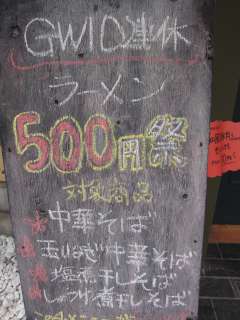 GW10連休
ラーメン
500円祭
対象商品
中華そば
玉ねぎ中華そば
塩煮干しそば
しょうゆ煮干しそば